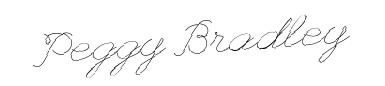 Peggy Bradley